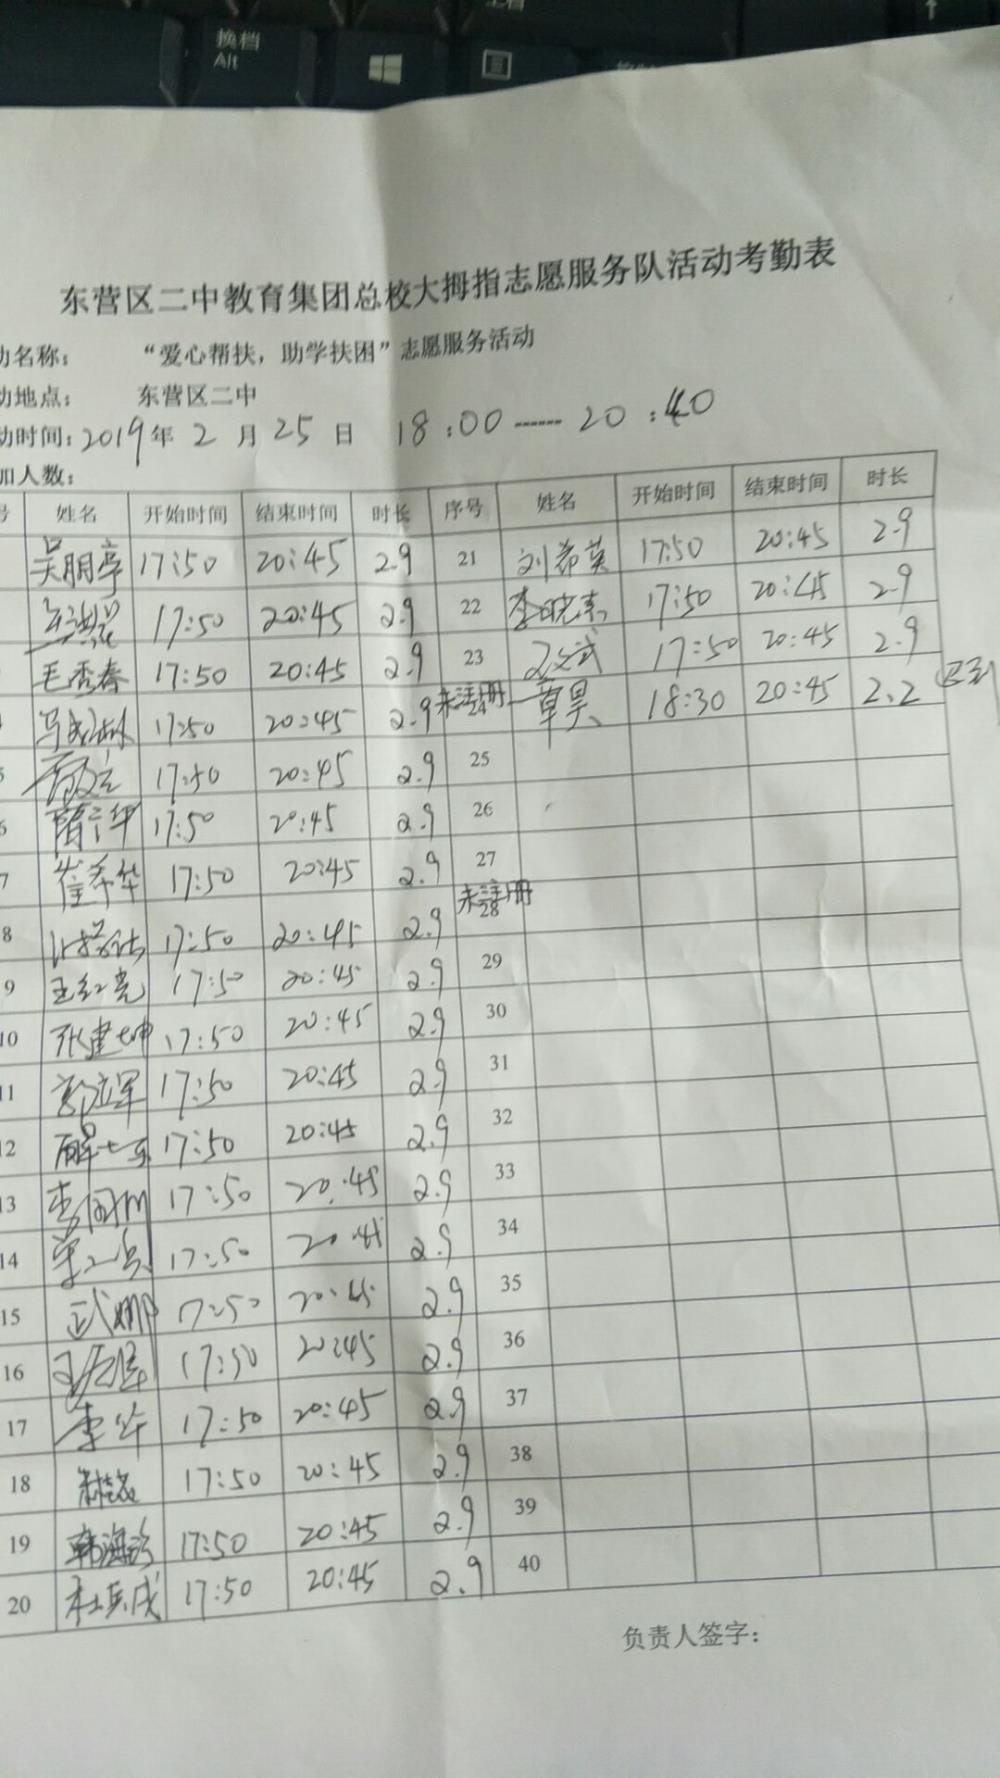 换档
Alt
东营区二中教育集团总校大拇指志愿服务队活动考勤表
动名称： “爱心帮扶，助学扶困”志愿服务活动
动地点： 东营区二中
动时间：2019年 2 月 25 日 18:00------20:40
加人数：
号 姓名 开始时间 结束时间 时长 序号 姓名 开始时间 结束时间 时长
吴朋亭 17:50 20:45 2.9 21 刘希英 17:50 20:45 2.9
17:50 20:45 2.9 22 李晓燕 17:50 20:45 2.9
毛秀春 17:50 20:45 2.9 23 17:50 20:45 2.9
17:50 20:45 2.9 未注册 24 章昊 18:30 20:45 2.2
5 17:50 20:45 2.9 25
6 隋云华 17:50 20:45 2.9 26
7 崔希华 17:50 20:45 2.9 27
8 17:50 20:45 2.9 未注册 28
9 王红亮 17:50 20:45 2.9 29
10 张建坤 17:50 20:45 2.9 30
11 17:50 20:45 2.9 31
12 17:50 20:45 2.9 32
13 17:50 20:45 2.9 33
14 17:50 20:45 2.9 34
15 武娜 17:50 20:45 2.9 35
16 17:50 20:45 2.9 36
17 李华 17:50 20:45 2.9 37
18 17:50 20:45 2.9 38
19 韩海珍 17:50 20:45 2.9 39
20 杜兵成 17:50 20:45 2.9 40
负责人签字：